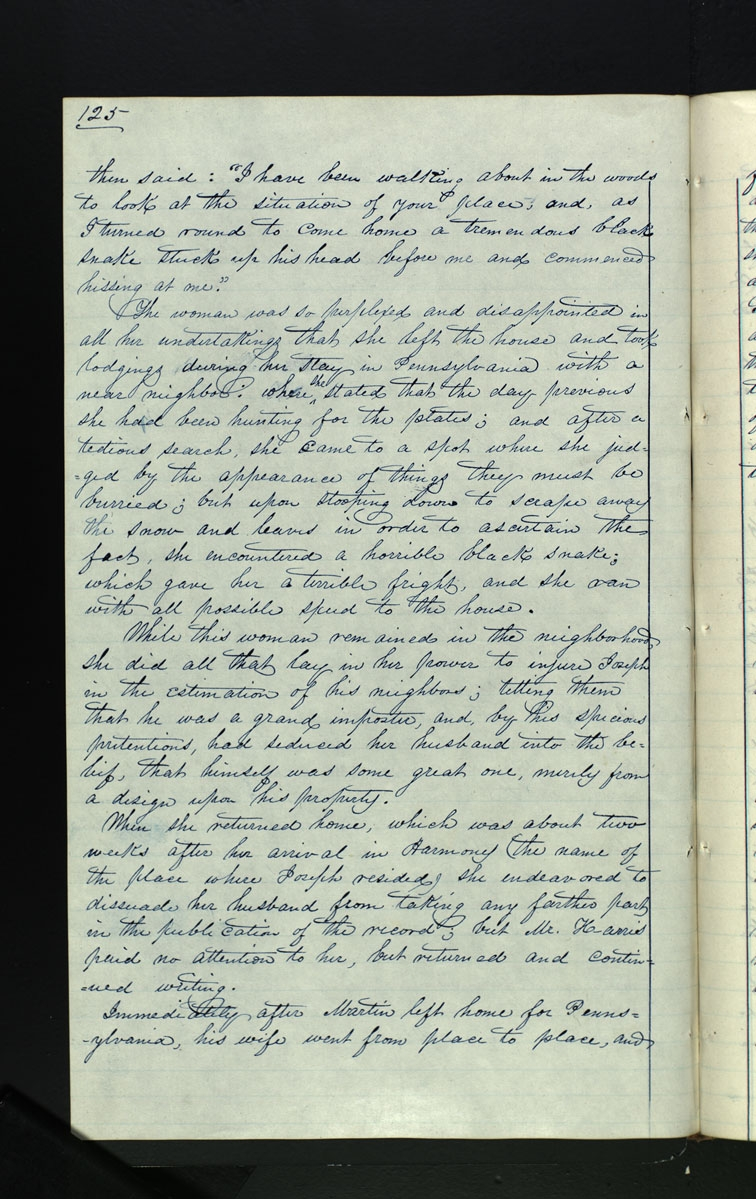 125
then said: "I have been walking about in the woods
to look at the situation of your place; and, as
I turned round to come home a tremendous black
snake stuck up his head before me and commenced
hissing at me."
The woman was so perplexed and disappointed in
all her undertakings that she left the house and took
lodgings during her stay in Pennsylvania with a
near neighbor. where she stated that the day previous
she had been hunting for the plates; and after a
tedious search, she came to a spot where she jud=
=ged by the appearance of things they must be
burried; but upon stooping down to scrape away
the snow and leaves in order to ascertain the
fact, she encountered a horrible black snake;
which gave her a terrible fright, and she ran
with all possible speed to the house.
While this woman remained in the neighborhood,
she did all that lay in her power to injure Joseph
in the estimation of his neighbors; telling them
that he was a grand imposter, and, by his specious
pritentions, had seduced her husband into the be=
lief, that himself was some great one, merely from
a design upon his property.
When she returned home, which was about two
weeks after her arrival in Harmony (the name of
the place where Joseph resided) she endeavored to
dissuade her husband from taking any farther part
in the publication of the record; but Mr. Harris
paid no attention to her, but returned and contin=
=ued writing.
Immediately after Martin left home for Penns=
=ylvania, his wife went from place to place, and